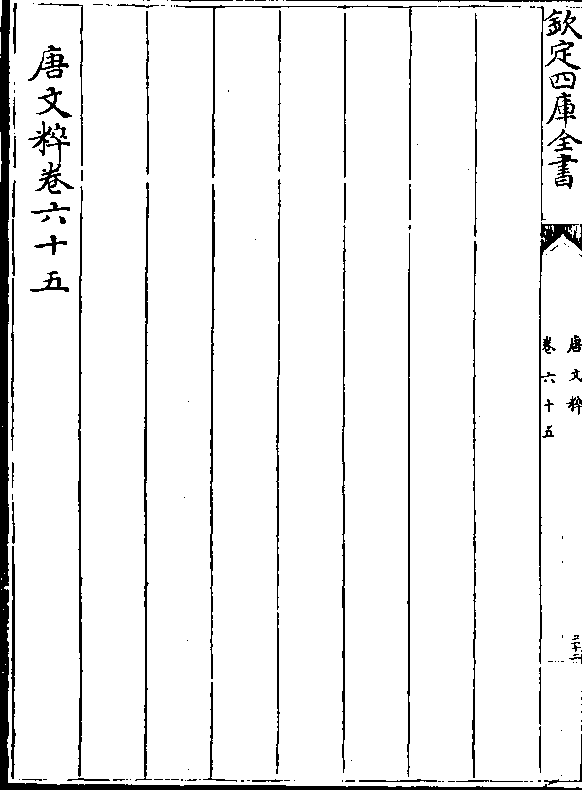 欽定四庫全書
唐文粹
卷六十五
唐文粹卷六十五